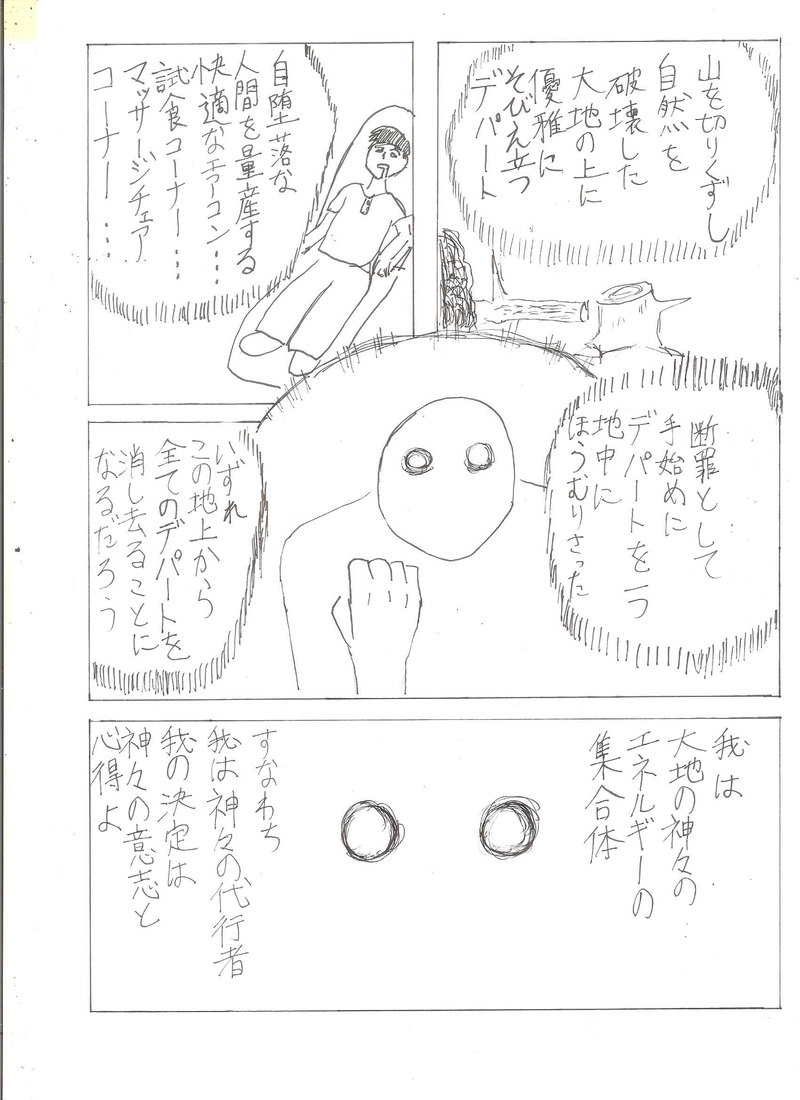 山を切りくずし
自然を
破壊した
大地の上に
優雅に
そびえ立つ
デパート
自堕落な
人間を量産する
快適なエアコン…
試食コーナー…
マッサージチェア
コーナー…
断罪として
手始めに
デパートを一つ
地中に
ほうむりさった
いずれ
この地上から
全てのデパートを
消し去ることに
なるだろう
我は
大地の神々の
エネルギーの
集合体
すなわち
我は神々の代行者
我の決定は
神々の意志と
心得よ